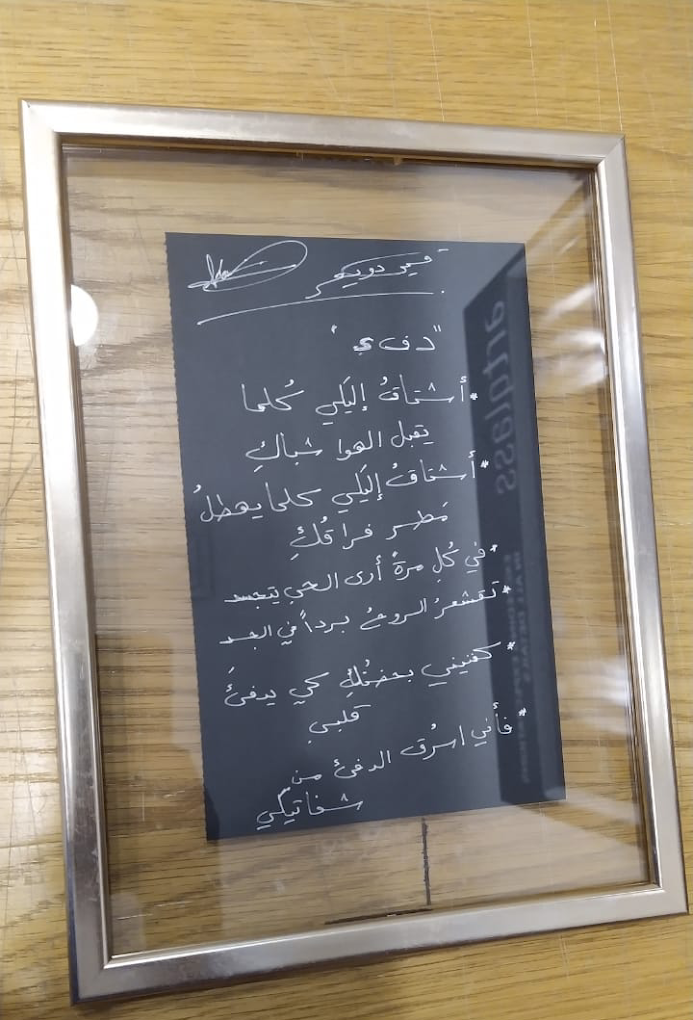 "دفء"
*أشتاقُ إليَكي كُلما
يقبل الهوا شباكِ
*أشتاقُ إليَكي كلما يهطلُ
مَطر فراقُكِ
*في كُلِ مرة أرى الحي يتجسد
*تقشعرُ الروحُ برداً في الجسد
*كفنيني بحضنُكِ كي يدفئَ
قلبي
*فأني اسرُق الدفئ من
شفاتيكي
artglass